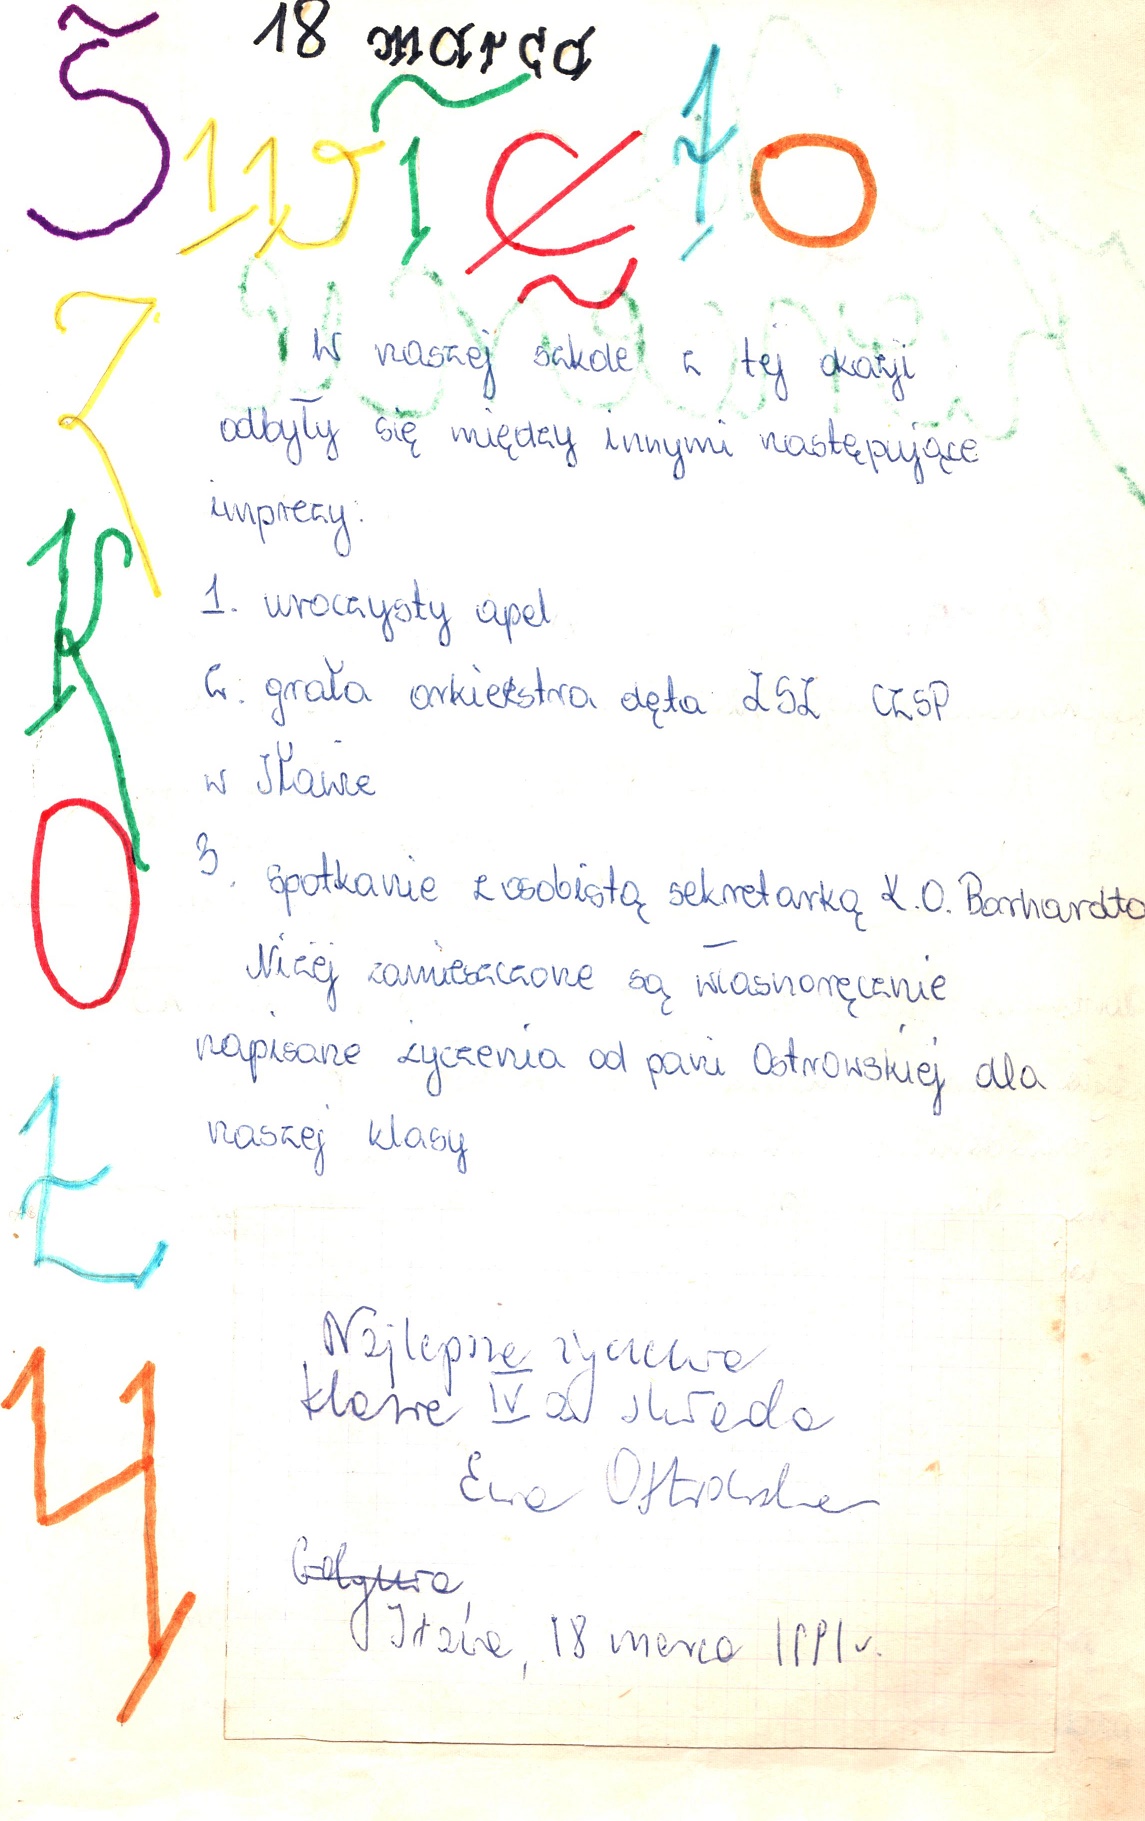 18 marca
Święto
SZKOŁY
W naszej szkole z tej okazji
odbyły się między innymi następujące
imprezy:
1. uroczysty apel
2. grała orkiestra dęta ZSZ CZSP
w Iławie
3. spotkanie z osobistą sekretarką K.O. Borhardta
Niżej zamieszczone są własnoręcznie
napisane życzenia od pani Ostrowskiej dla
naszej klasy
Najlepsze życzenia
klasie IV a składa
Ewa Ostrowska
Gdynia,
Iława, 18 marca 1991 r.